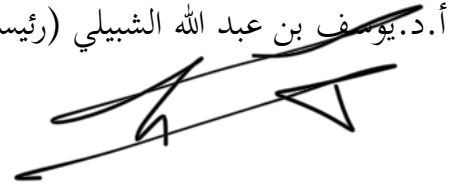 أ.د.يوسف بن عبد الله الشبيلي (رئيس